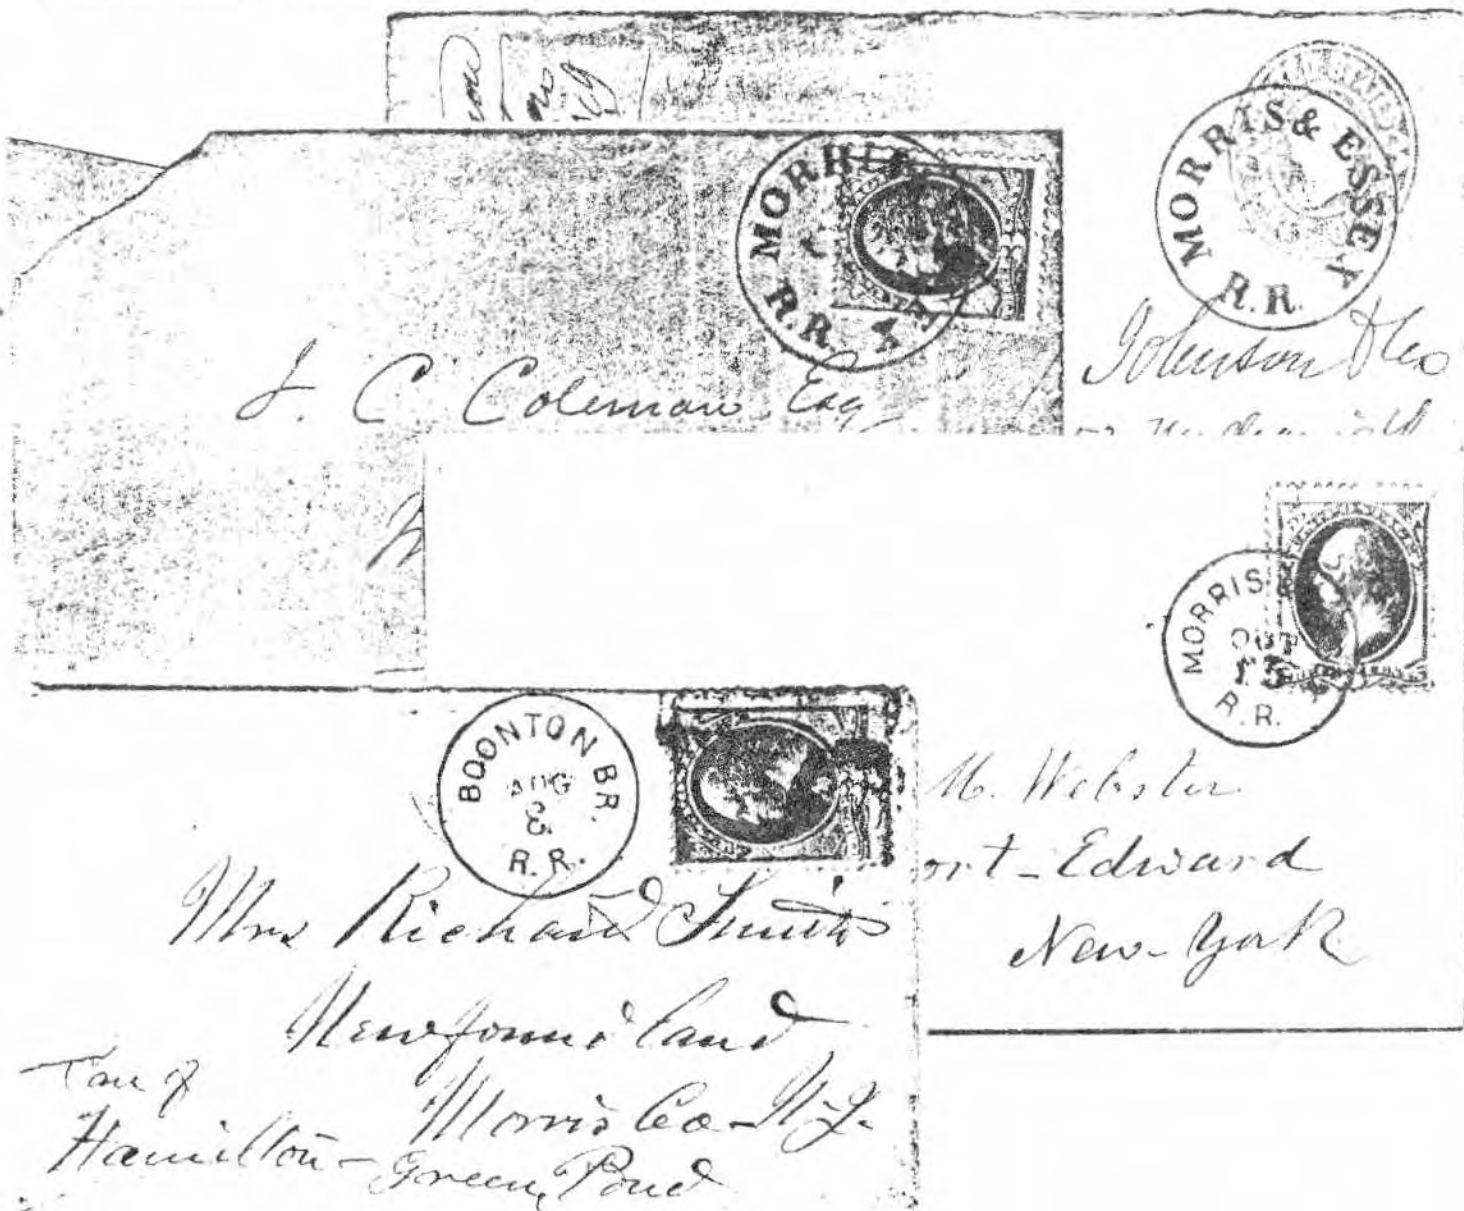 MORRIS & ESSEX
R.R.
Johnson & Co
MORRIS
R.R.
J. C. Coleman Esq
MORRIS &
OCT
13
R.R.
M. Webster
ort-Edward
New-York
BOONTON BR.
AUG
8
R.R.
Mrs Richard Smith
Newfoundland
Morris Co-N.J.
Care of
Hamilton-Green Pond